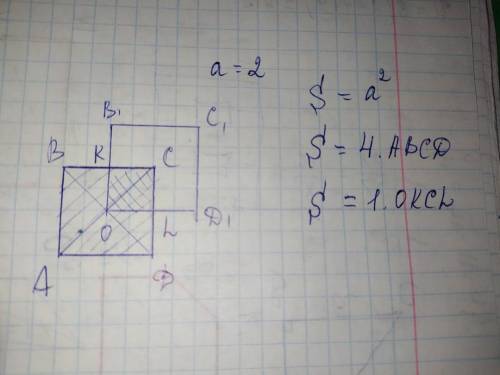 a = 2
S = a²
S = 4. ABCD
S = 1. OKCL
B₁ C₁
B K C
O L D₁
A D